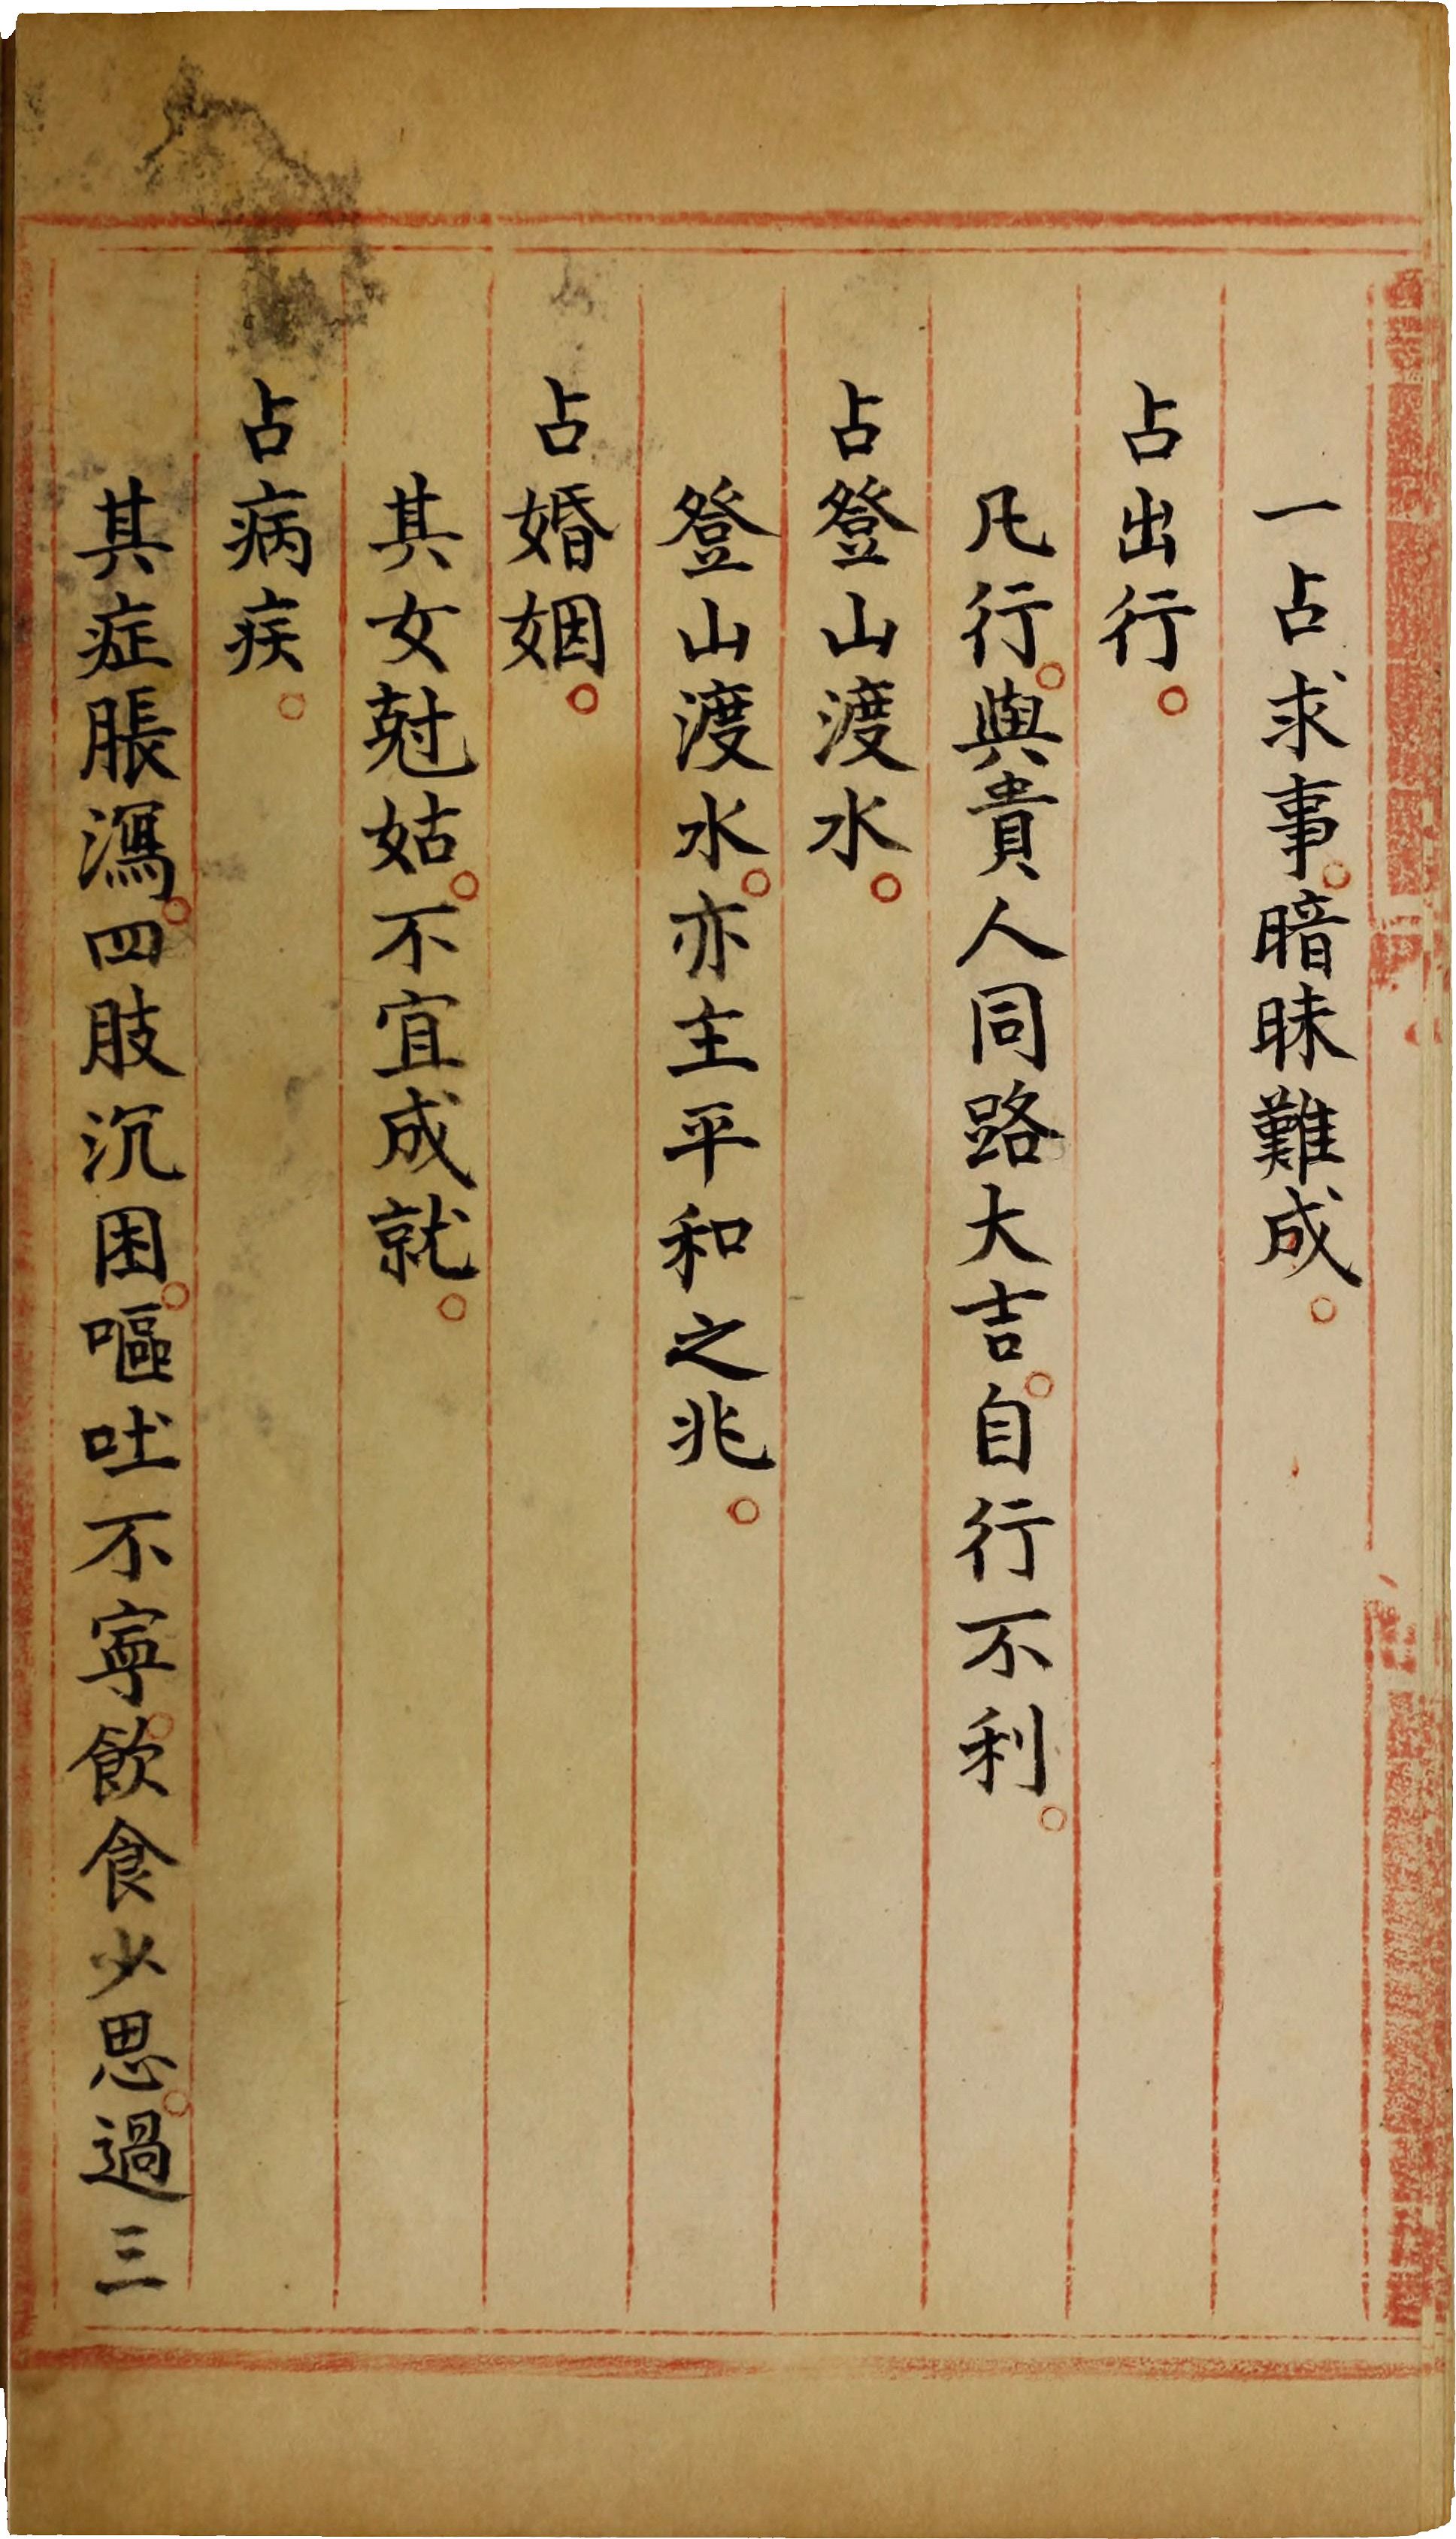 一占求事。暗昧難成。
占出行。
凡行。與貴人同路大吉。自行不利。
占登山渡水。
登山渡水。亦主平和之兆。
占婚姻。
其女尅姑。不宜成就。
占病疾。
其症脹瀉。四肢沉困。嘔吐不寧。飲食少思。過三